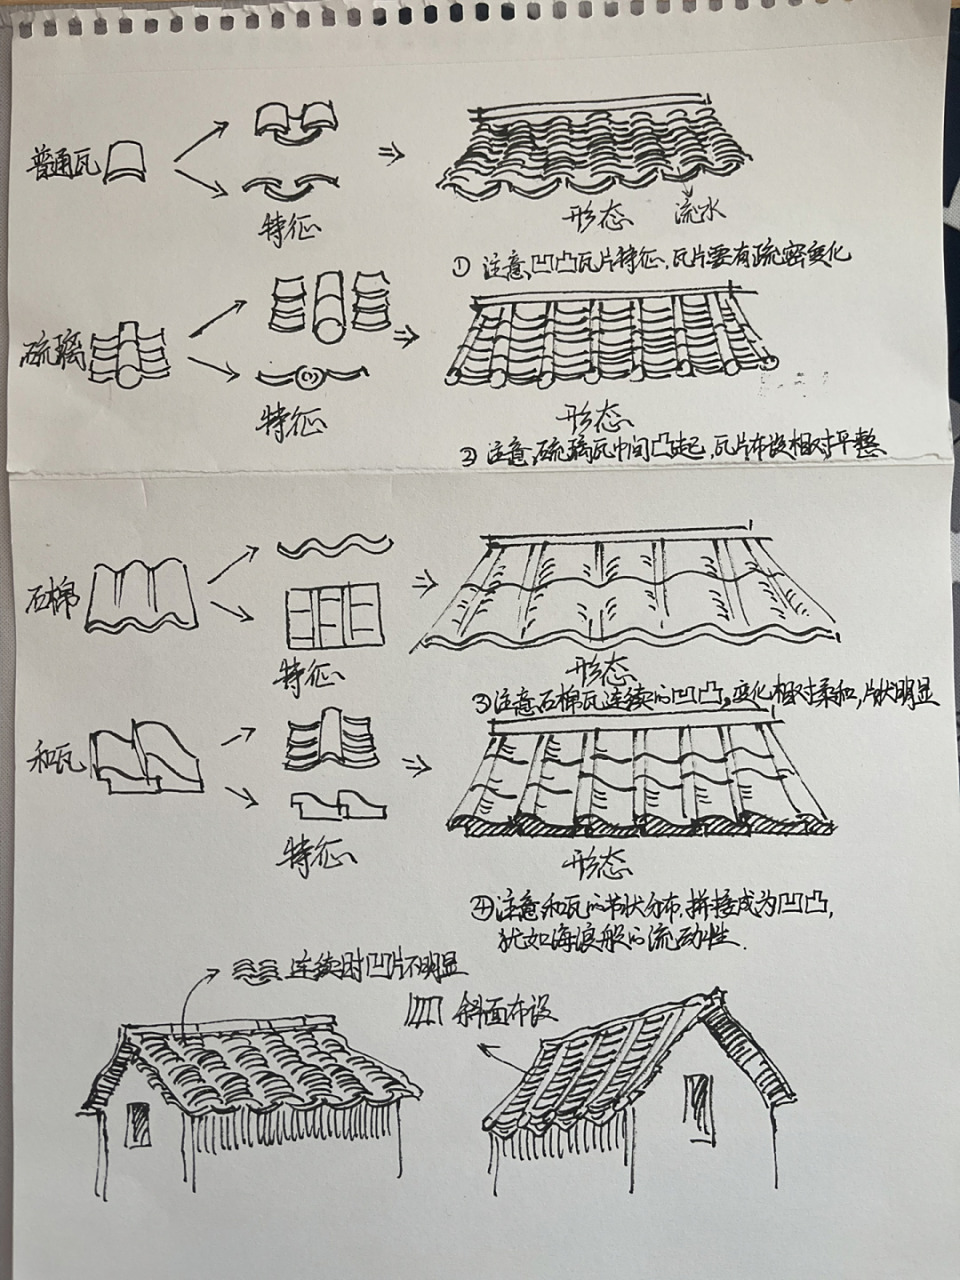 普通瓦
特征
形态
流水
① 注意凹凸瓦片特征，瓦片要有疏密变化
硫璃
特征
形态
② 注意硫璃瓦中间凸起，瓦片布设相对平整
石棉
特征
形态
③ 注意石棉瓦连续的凹凸，变化相对柔和，片状明显
和瓦
特征
形态
④ 注意和瓦的节状分布，拼接成为凹凸，
犹如海浪般的流动性.
连续时凹片不明显
斜面布设